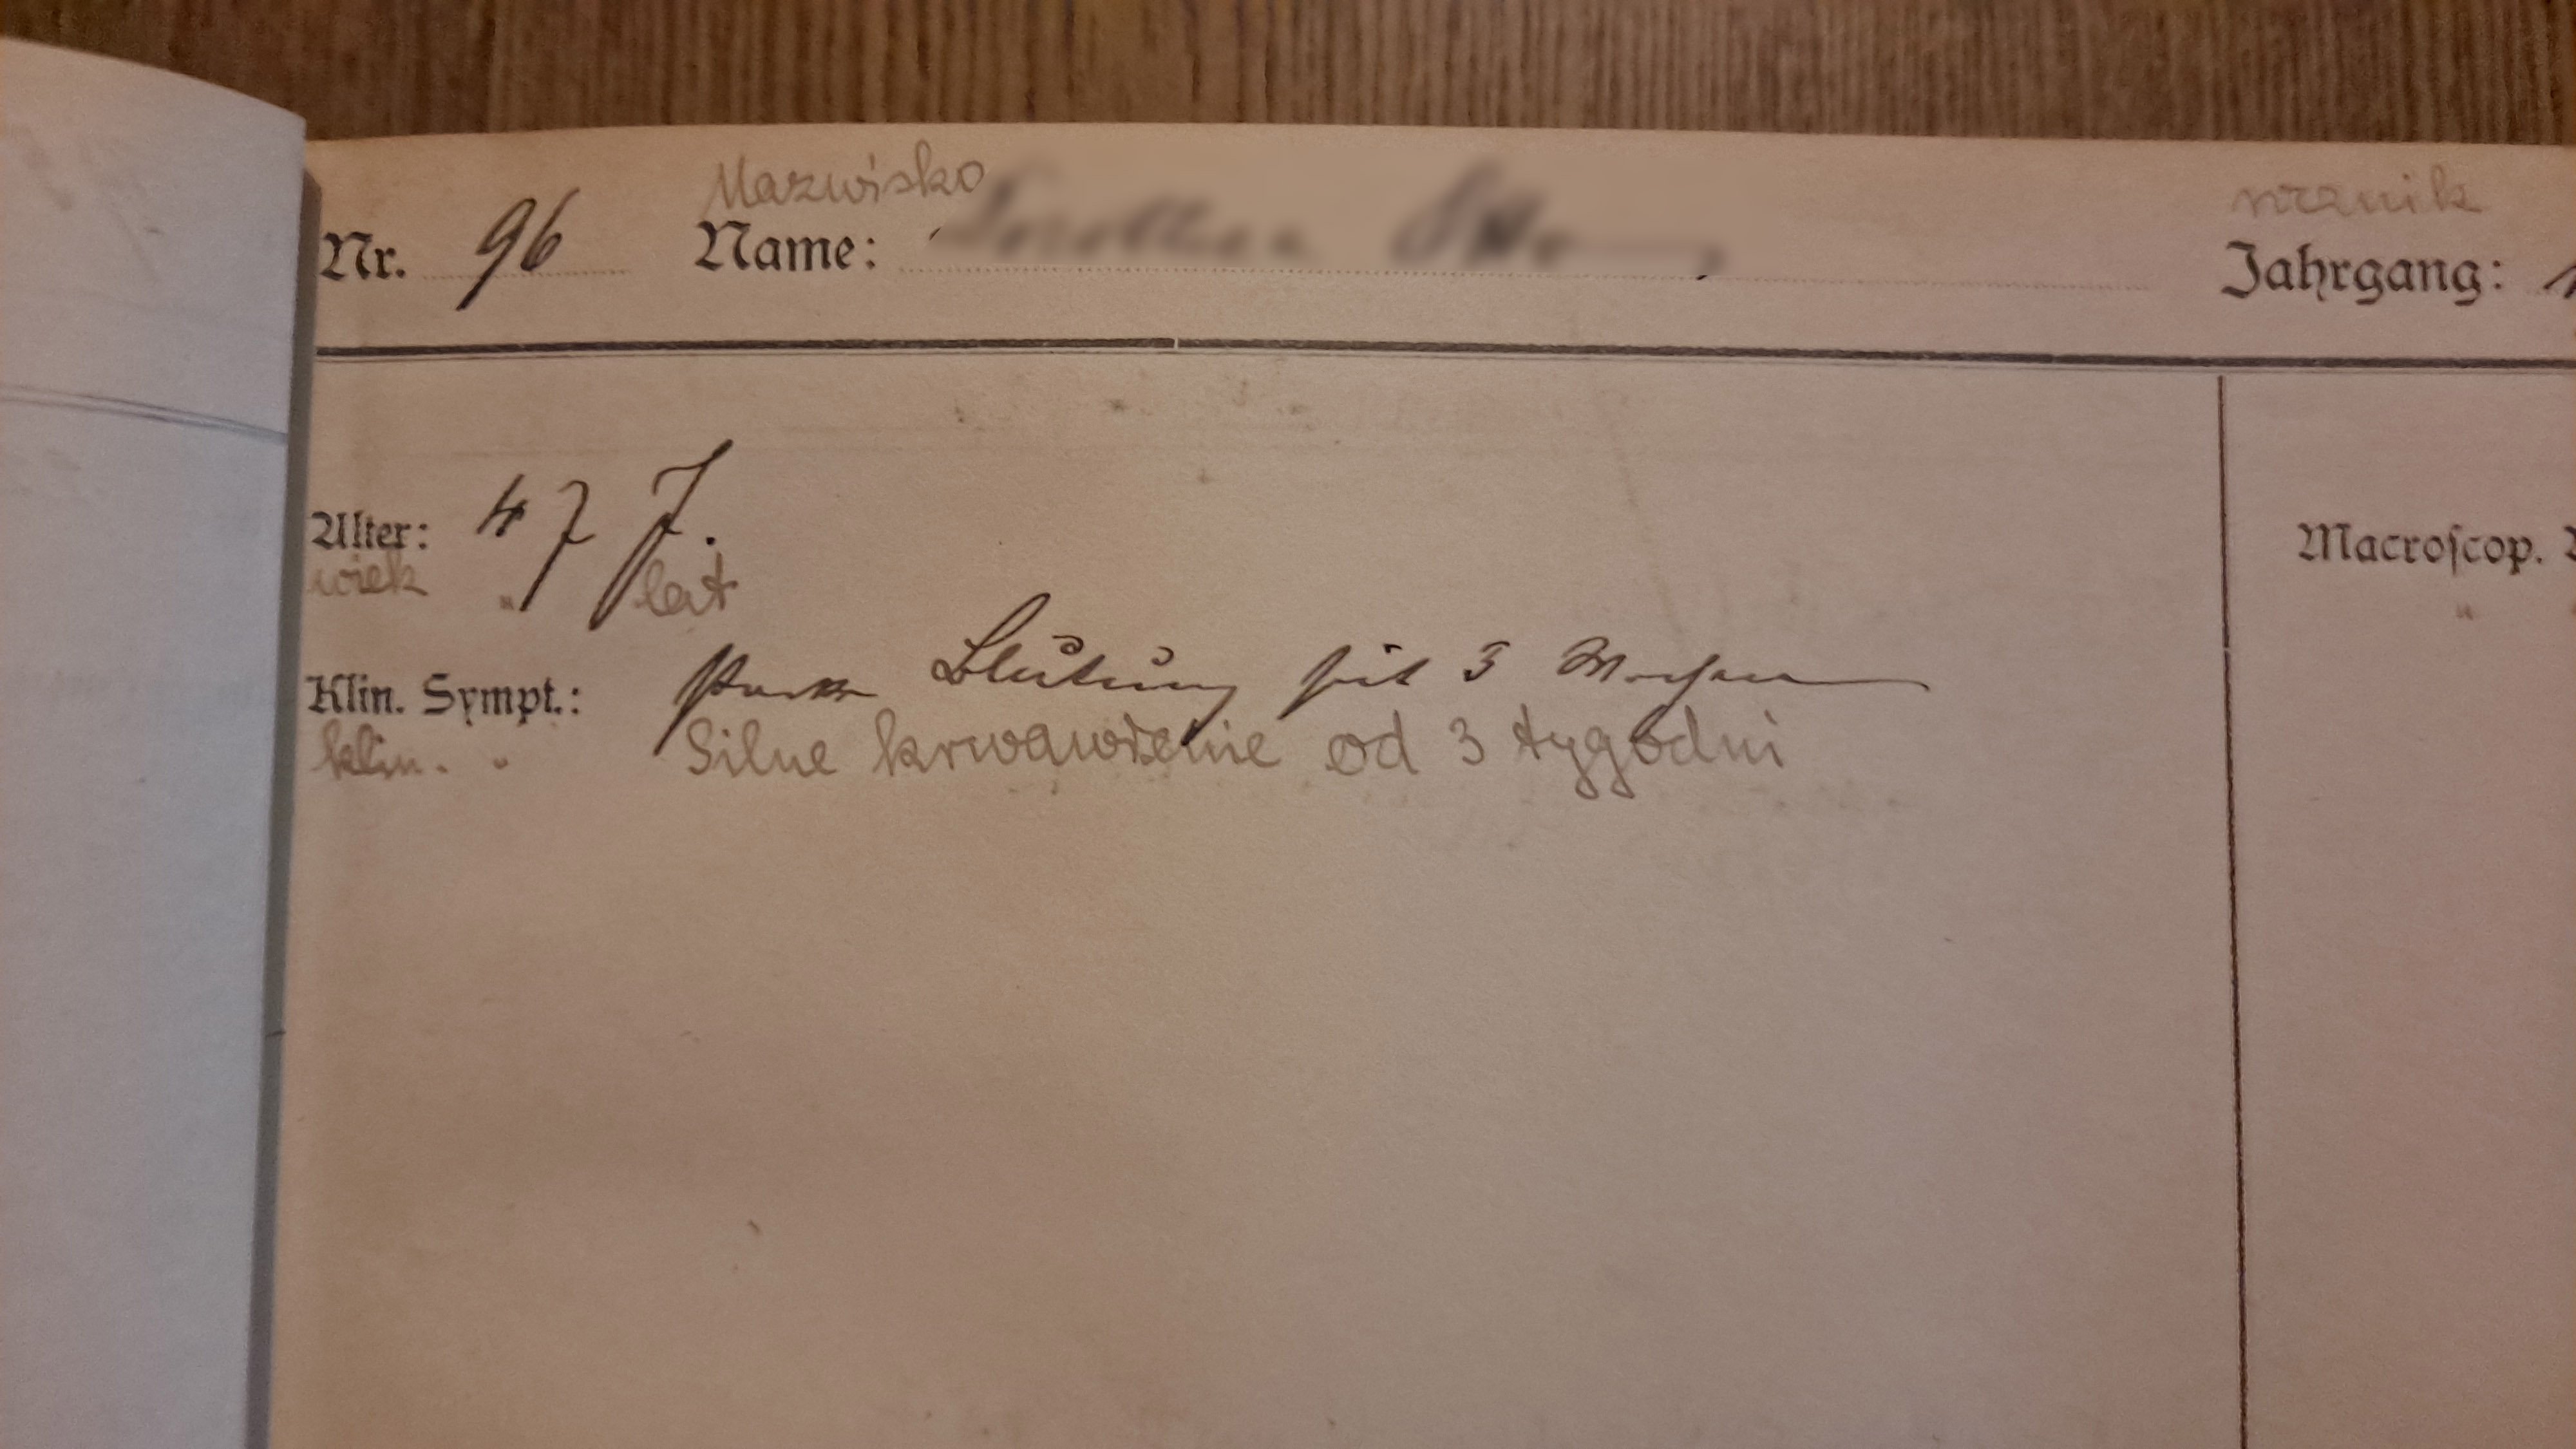 Nazwisko rocznik
Nr. 96 Name: Jahrgang:
Alter: 47 J. Macroscop.
wiek " lat "
Klin. Sympt.: starke Blutung seit 3 Wochen
klin. " Silne krwawienie od 3 tygodni